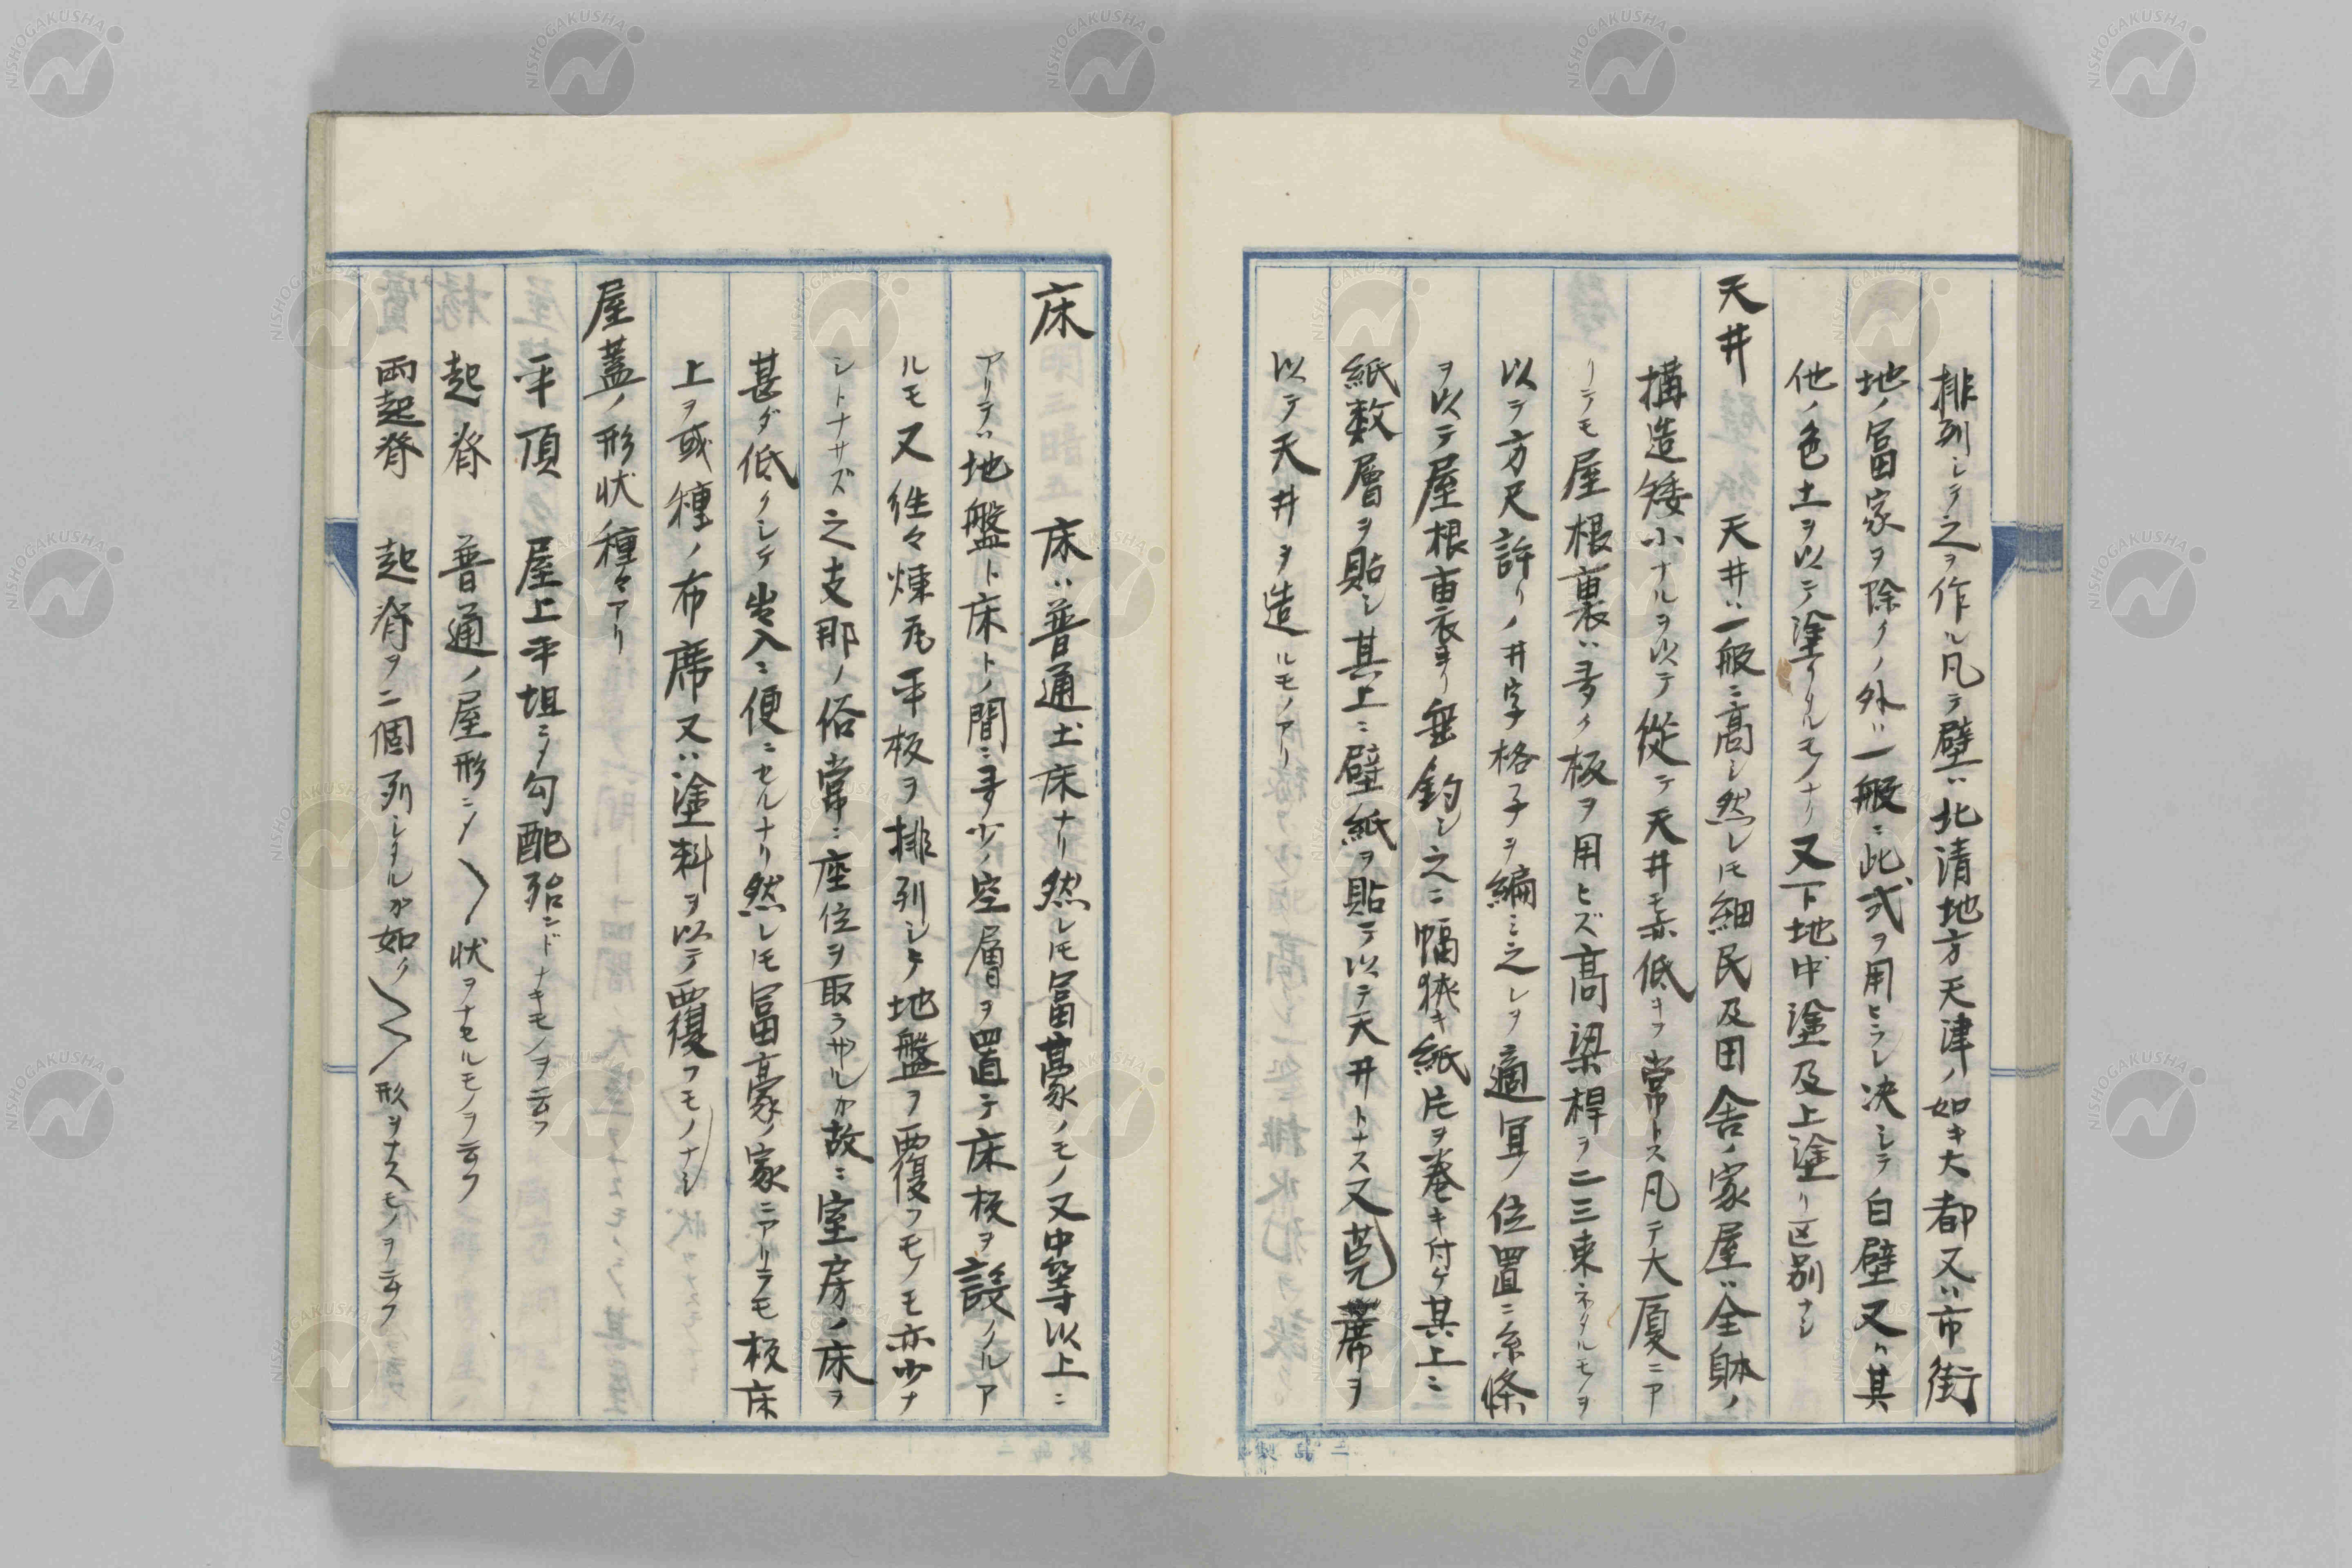 排列シテ之ヲ作ル凡テ壁ハ北清地方天津ノ如キ大都又ハ市街
地ノ冨家ヲ除クノ外ハ一般ニ此式ヲ用ヒラレ决シテ白壁又ハ其
他ノ色土ヲ以テ塗リタルモノナリ又下地中塗及上塗リ区別ナシ
天井 天井ハ一般ニ高シ然レ𪜈細民及田舎ノ家屋ハ全躰ノ
構造矮小ナルヲ以テ從テ天井モ亦低キヲ常トス凡テ大厦ニア
リテモ屋根裏ハ多ク板ヲ用ヒズ高梁桿ヲ二三束ネタルモノヲ
以テ方尺許リノ井字格子ヲ編ミ之レヲ適宜ノ位置ニ糸條
ヲ以テ屋根裏ヨリ垂釣シ之ニ幅狹キ紙片ヲ巻キ付ケ其上ニ
紙数層ヲ貼シ其上ニ壁紙ヲ貼テ以テ天井トナス又莞蓆ヲ
以テ天井ヲ造ルモノアリ
床 床ハ普通土床ナリ然レ𪜈冨豪ノモノ又中等以上ニ
アリテハ地盤ト床トノ間ニ多少ノ空層ヲ置テ床板ヲ設クルア
ルモ又徃々煉瓦平板ヲ排列シテ地盤ヲ覆フモノモ亦少ナ
シトナサズ之支那ノ俗常ニ座位ヲ取ラザルカ故ニ室房ノ床ヲ
甚ダ低クシテ出入ニ便ニセルナリ然レ𪜈冨豪ノ家ニアリテモ板床
上ヲ或種ノ布席又ハ塗料ヲ以テ覆フモノナシ
屋蓋ノ形状種々アリ
平頂 屋上平坦ニ〆勾配殆ンドナキモノヲ云フ
起脊 普通ノ屋形ニ〆 状ヲナセルモノヲ云フ
両起脊 起脊ヲ二個列シタルカ如ク 形ヲナスモノヲ云フ
NISHOGAKUSHA